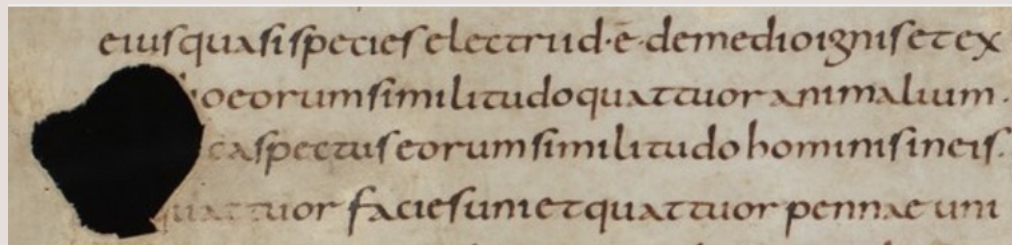 eius quasi species electri id·ē· de medio ignis et ex
eorum similitudo quattuor animalium.
aspectus eorum similitudo hominis in eis.
quattuor facies uni et quattuor pennae uni